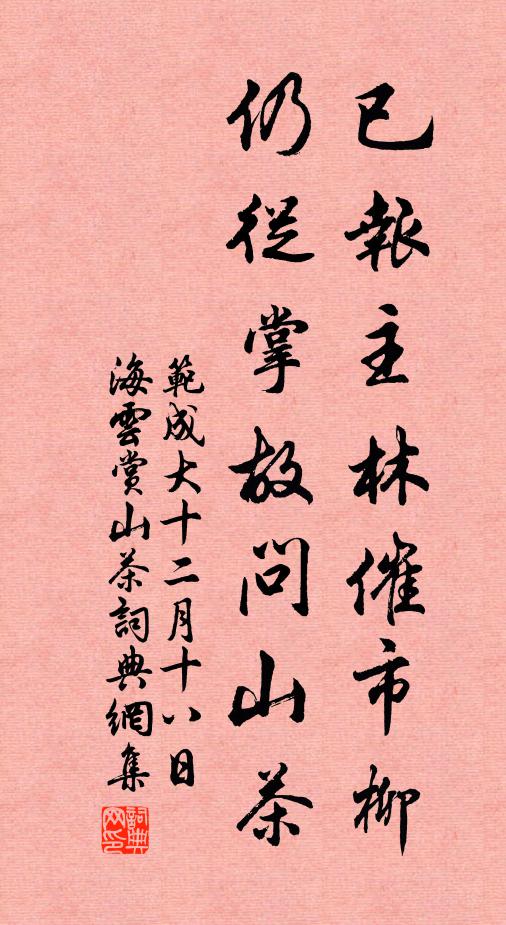 已報主林催市柳
仍從掌故問山茶
範成大十二月十八日
海雲賞山茶詞典網集
詞典网印